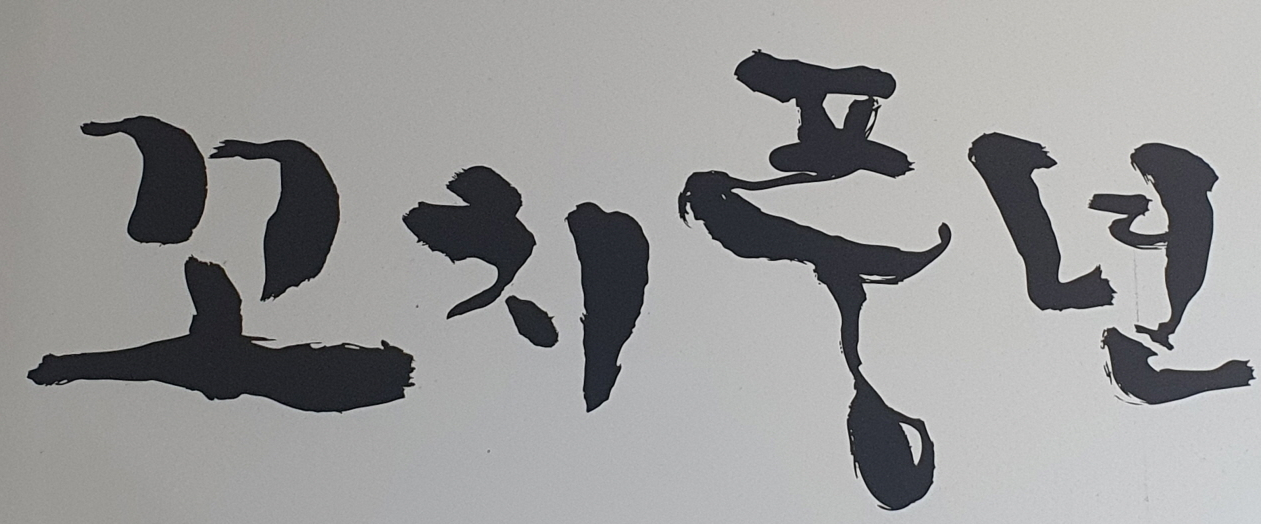 꼬치풍년